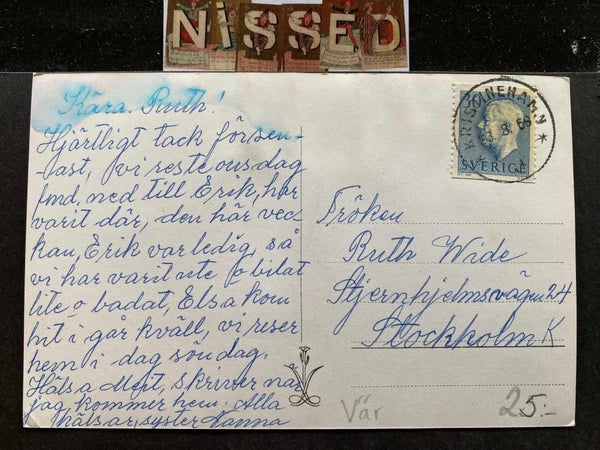 NiSSED
Kära Ruth!
Hjärtligt tack för sen-
ast, vi reste onsdag
fmd, ned till Erik, har
varit där, den här vec-
kan, Erik var ledig, så
vi har varit ute o bilat
lite o badat, Elsa kom
hit i går kväll, vi reser
hem i dag söndag.
Hälsa Majt, skriver när
jag kommer hem. Alla
hälsar, syster Nanna
KRISTINEHAMN
8.65
SVERIGE
Fröken
Ruth Wide
Stjernhjelmsvägen 24
Stockholm K
Vär
25:-